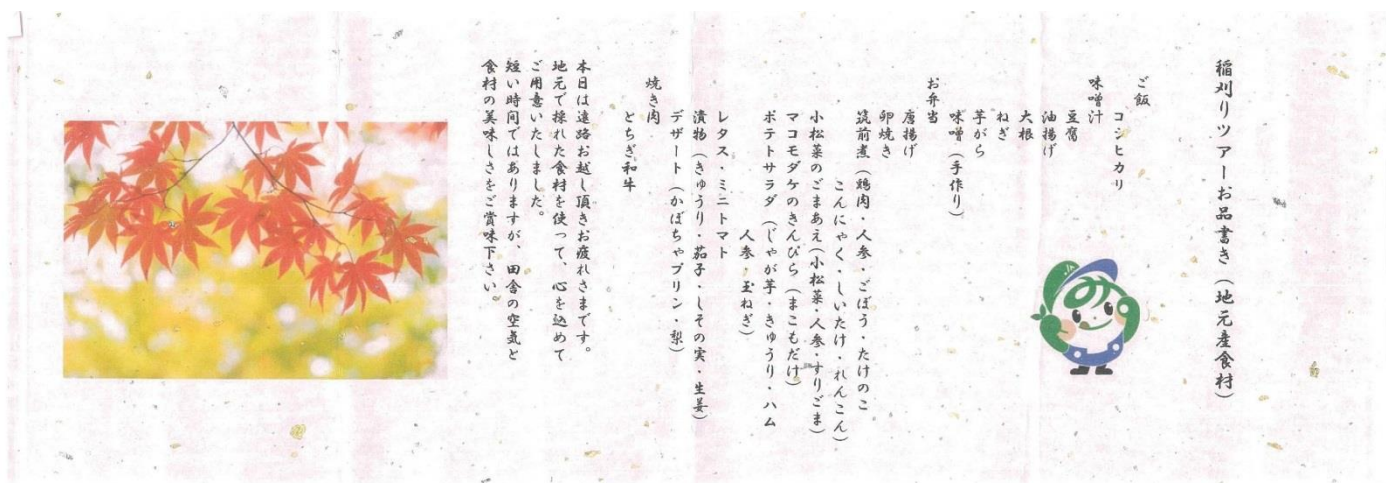 稲刈りツアーお品書き(地元産食材)
ご飯
コシヒカリ
味噌汁
豆腐
油揚げ
大根
ねぎ
芋がら
味噌(手作り)
お弁当
唐揚げ
卵焼き
筑前煮(鶏肉・人参・ごぼう・たけのこ
こんにゃく・しいたけ・れんこん)
小松菜のごまあえ(小松菜・人参・すりごま)
マコモダケのきんぴら(まこもだけ)
ポテトサラダ(じゃが芋・きゅうり・ハム
人参・玉ねぎ)
レタス・ミニトマト
漬物(きゅうり・茄子・しその実・生姜)
デザート(かぼちゃプリン・梨)
焼き肉
とちぎ和牛
本日は遠路お越し頂きお疲れさまです。
地元で採れた食材を使って、心を込めて
ご用意いたしました。
短い時間ではありますが、田舎の空気と
食村の美味しさをご賞味下さい。
JA
み